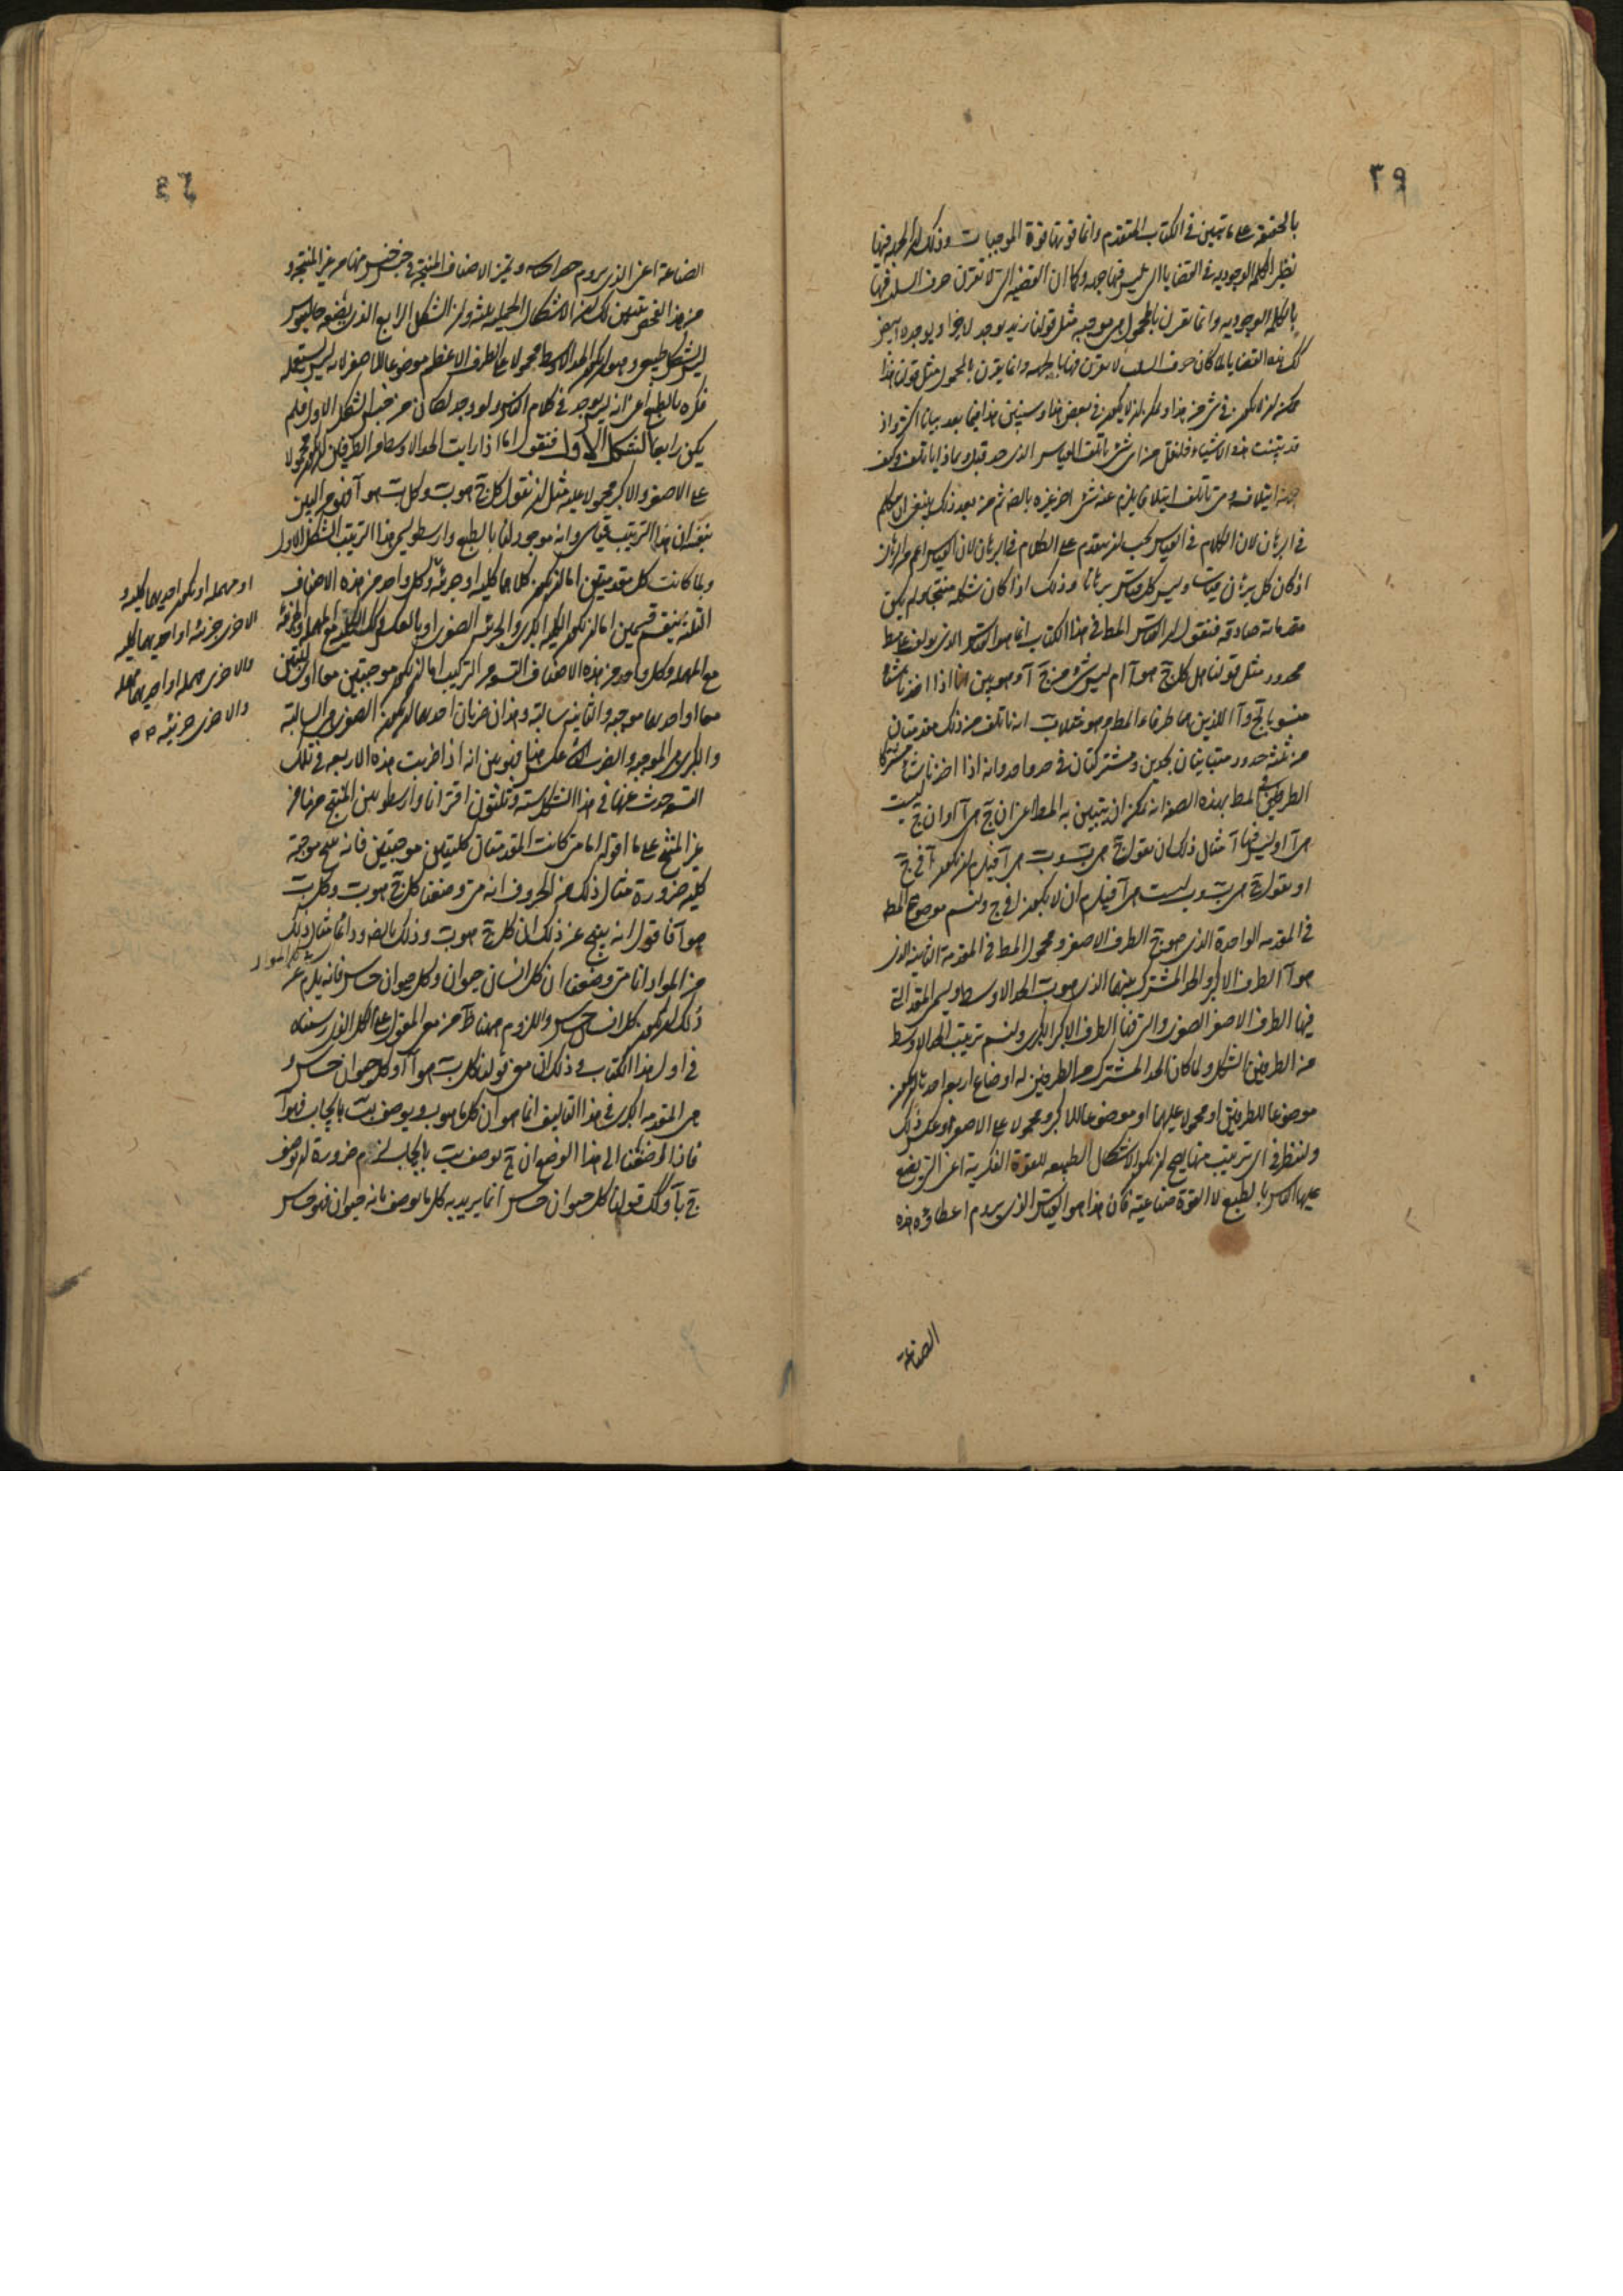 ٣٩
بالحقيقة على ما تبين في الكتاب المتقدم وانما قوتها قوة الموجبات وذلك ان الجهة فيها
نظير الكلمة الوجوديه في القضايا التي ليس فيها جهه وكما ان القضيه التي لا تقرن حرف السلب فيها
بالكلمه الوجوديه وانما تقرن بالمحمول هي موجبه مثل قولنا زيد يوجد لا خيرا او يوجد لا ابيض
كك هذه القضايا لما كان حرف السلب لا يقرن فيها بالجهه وانما يقرن بالمحمول مثل قولنا هذا
ممكن ان لا يكون في شئ من هذا وممكن ان لا يكون في بعض هذا وسنبين هذا فيما بعد بيانا اكثر واذ
قد تبينت هذه الاشياء فلنقل من اى شئ ياتلف القياس الذى حد قبل وبماذا ياتلف وكيف
جهة ايتلافه ومتى ياتلف ايتلافا يلزم عنه شئ اخر غيره بالضرورة ثم من بعد ذلك ينبغى ان نتكلم
في البرهان لان الكلام في القياس يجب ان يتقدم على الكلام في البرهان لان القياس اعم من البرهان
اذ كان كل برهان قياسا وليس كل قياس برهانا وذلك اذا كان شكله منتجا ولم يكن
مقدماته صادقه فنقول ان القياس المط في هذا الكتاب انما هو القياس الذي يولف على مط
محدود مثل قولنا هل كل ج هو آ ام ليس شئ من ج آ وهو بين انا اذا اخذنا شيئا
منسوبا لج وآ اللذين هما طرفا المط وهو مثلا ب انه ياتلف من ذلك مقدمتان
من ثلثة حدود متباينتان بحدين ومشتركتان في حد واحد وانه اذا اخذنا شيئا مشتركا
لطرفى المط بهذه الصفه انه يمكن ان يتبين به المط اعني ان ج هى آ او ان ج ليست
هى آ او ليس فيها آ مثال ذلك ان نقول ج هى ب وب هى آ فيلزم ان يكون آ في ج
او نقول ج هى ب وب ليست هى آ فيلزم ان لا يكون آ في ج ولنسم موضوع المط
في المقدمه الواحدة الذى هو ج الطرف الاصغر ومحمول المط في المقدمة الثانية الذى
هو آ الطرف الاكبر والحد المشترك بينهما الذى هو ب الحد الاوسط ويسمى المقدمة التي
فيها الطرف الاصغر الصغرى والتي فيها الطرف الاكبر الكبرى ولنسم ترتيب الحد الاوسط
من الطرفين الشكل ولما كان الحد المشترك من الطرفين له اوضاع اربعه احدها ان يكون
موضوعا للطرفين او محمولا عليهما او موضوعا للاكبر ومحمولا على الاصغر او عكس ذلك
ولننظر في اى ترتيب منها يصح ان يكون الاشكال الطبيعيه للقوة الفكرية اعني التي يقع
عليها الناس بالطبع لا القوة صناعية فان هذا هو القياس الذى يروم اعطاؤه هذه
الصناعة
الصناعة اعني الذى يروم حصر اصنافه وتميز الاصناف المنتجة في جنس جنس منها من غير المنتجه و
من هذا الفحص يتبين لك ان الاشكال الحمليه ثلثه وان الشكل الرابع الذى يضعه جالينوس
ليس بشكل طبيعى وهو ان يكون الحد الاوسط محمولا على الطرف الاعظم موضوعا للاصغر لانه ليس تستعمله
فكره بالطبع اعني انه ليس يوجد في كلام الناس ولو وجد لكان من جنس الشكل الاول فلم
يكن رابعا الشكل الاول فنقول انا اذا رتبت الحد الاوسط من الطرفين ان يكون محمولا
على الاصغر والاكبر محمولا عليه مثل ان نقول كل ج هو ب وكل ب هو آ فهو من البين
بنفسه ان هذا الترتيب قياسى وانه موجود لنا بالطبع وارسطو يسمى هذا الترتيب الشكل الاول
ولما كانت كل مقدمتين اما ان يكون كلاهما كليه او جزئيه وكل واحد من هذه الاصناف
الثلثه ينقسم قسمين اما ان يكون الكليه الكبرى والجزئيه الصغرى او بالعكس وكك الكليه مع المهمله والجزئيه
مع المهمله وكل واحد من هذه الاصناف التسعه من التركيب اما ان يكون موجبتين معا او سالبتين
معا او احداهما موجبه والثانيه سالبه وهذان ضربان احدهما ان يكون الصغرى هي السالبة
والكبرى هي الموجبه والضرب الثاني عكس هذا فهو بين انه اذا ضربت هذه الاربعه في تلك
التسعه حدث عنها في هذا الشكل سته وثلثون اقترانا وارسطو بين المنتج منها من
غير المنتج على ما اقوله اما متى كانت المقدمتان كليتين موجبتين فانه ينتج موجبة
كليه ضرورة مثال ذلك من الحروف انه متى وضعنا كل ج هو ب وكل ب
هو آ فاقول انه ينتج عن ذلك ان كل ج هو ب وذلك بالضرورة ودائما مثال ذلك
من المواد انا متى وضعنا ان كل انسان حيوان وكل حيوان حساس فانه يلزم عن
ذلك ان يكون كل انسان حساس واللزوم هاهنا ظاهر من معنى المقول على الكل الذى رسمناه
في اول هذا الكتاب وذلك ان معنى قولنا كل ب هو آ او كل حيوان حساس
هى المقدمه الكبرى في هذا التاليف انما هو ان كل ما هو ب ويوصف بب بايجاب فهو آ
فاذا اضفنا الى هذا الوضع ان ج يوصف بب بايجاب لزم ضرورة ان يوصف
ج بآ وكك قولنا كل حيوان حساس انما يريد به كل ما يوصف بانه حيوان فهو حساس
او مهمله او يكون احديهما كليه و
الاخرى جزئيه او احديهما كليه
والاخرى مهمله او احديهما مهمله
والاخرى جزئيه